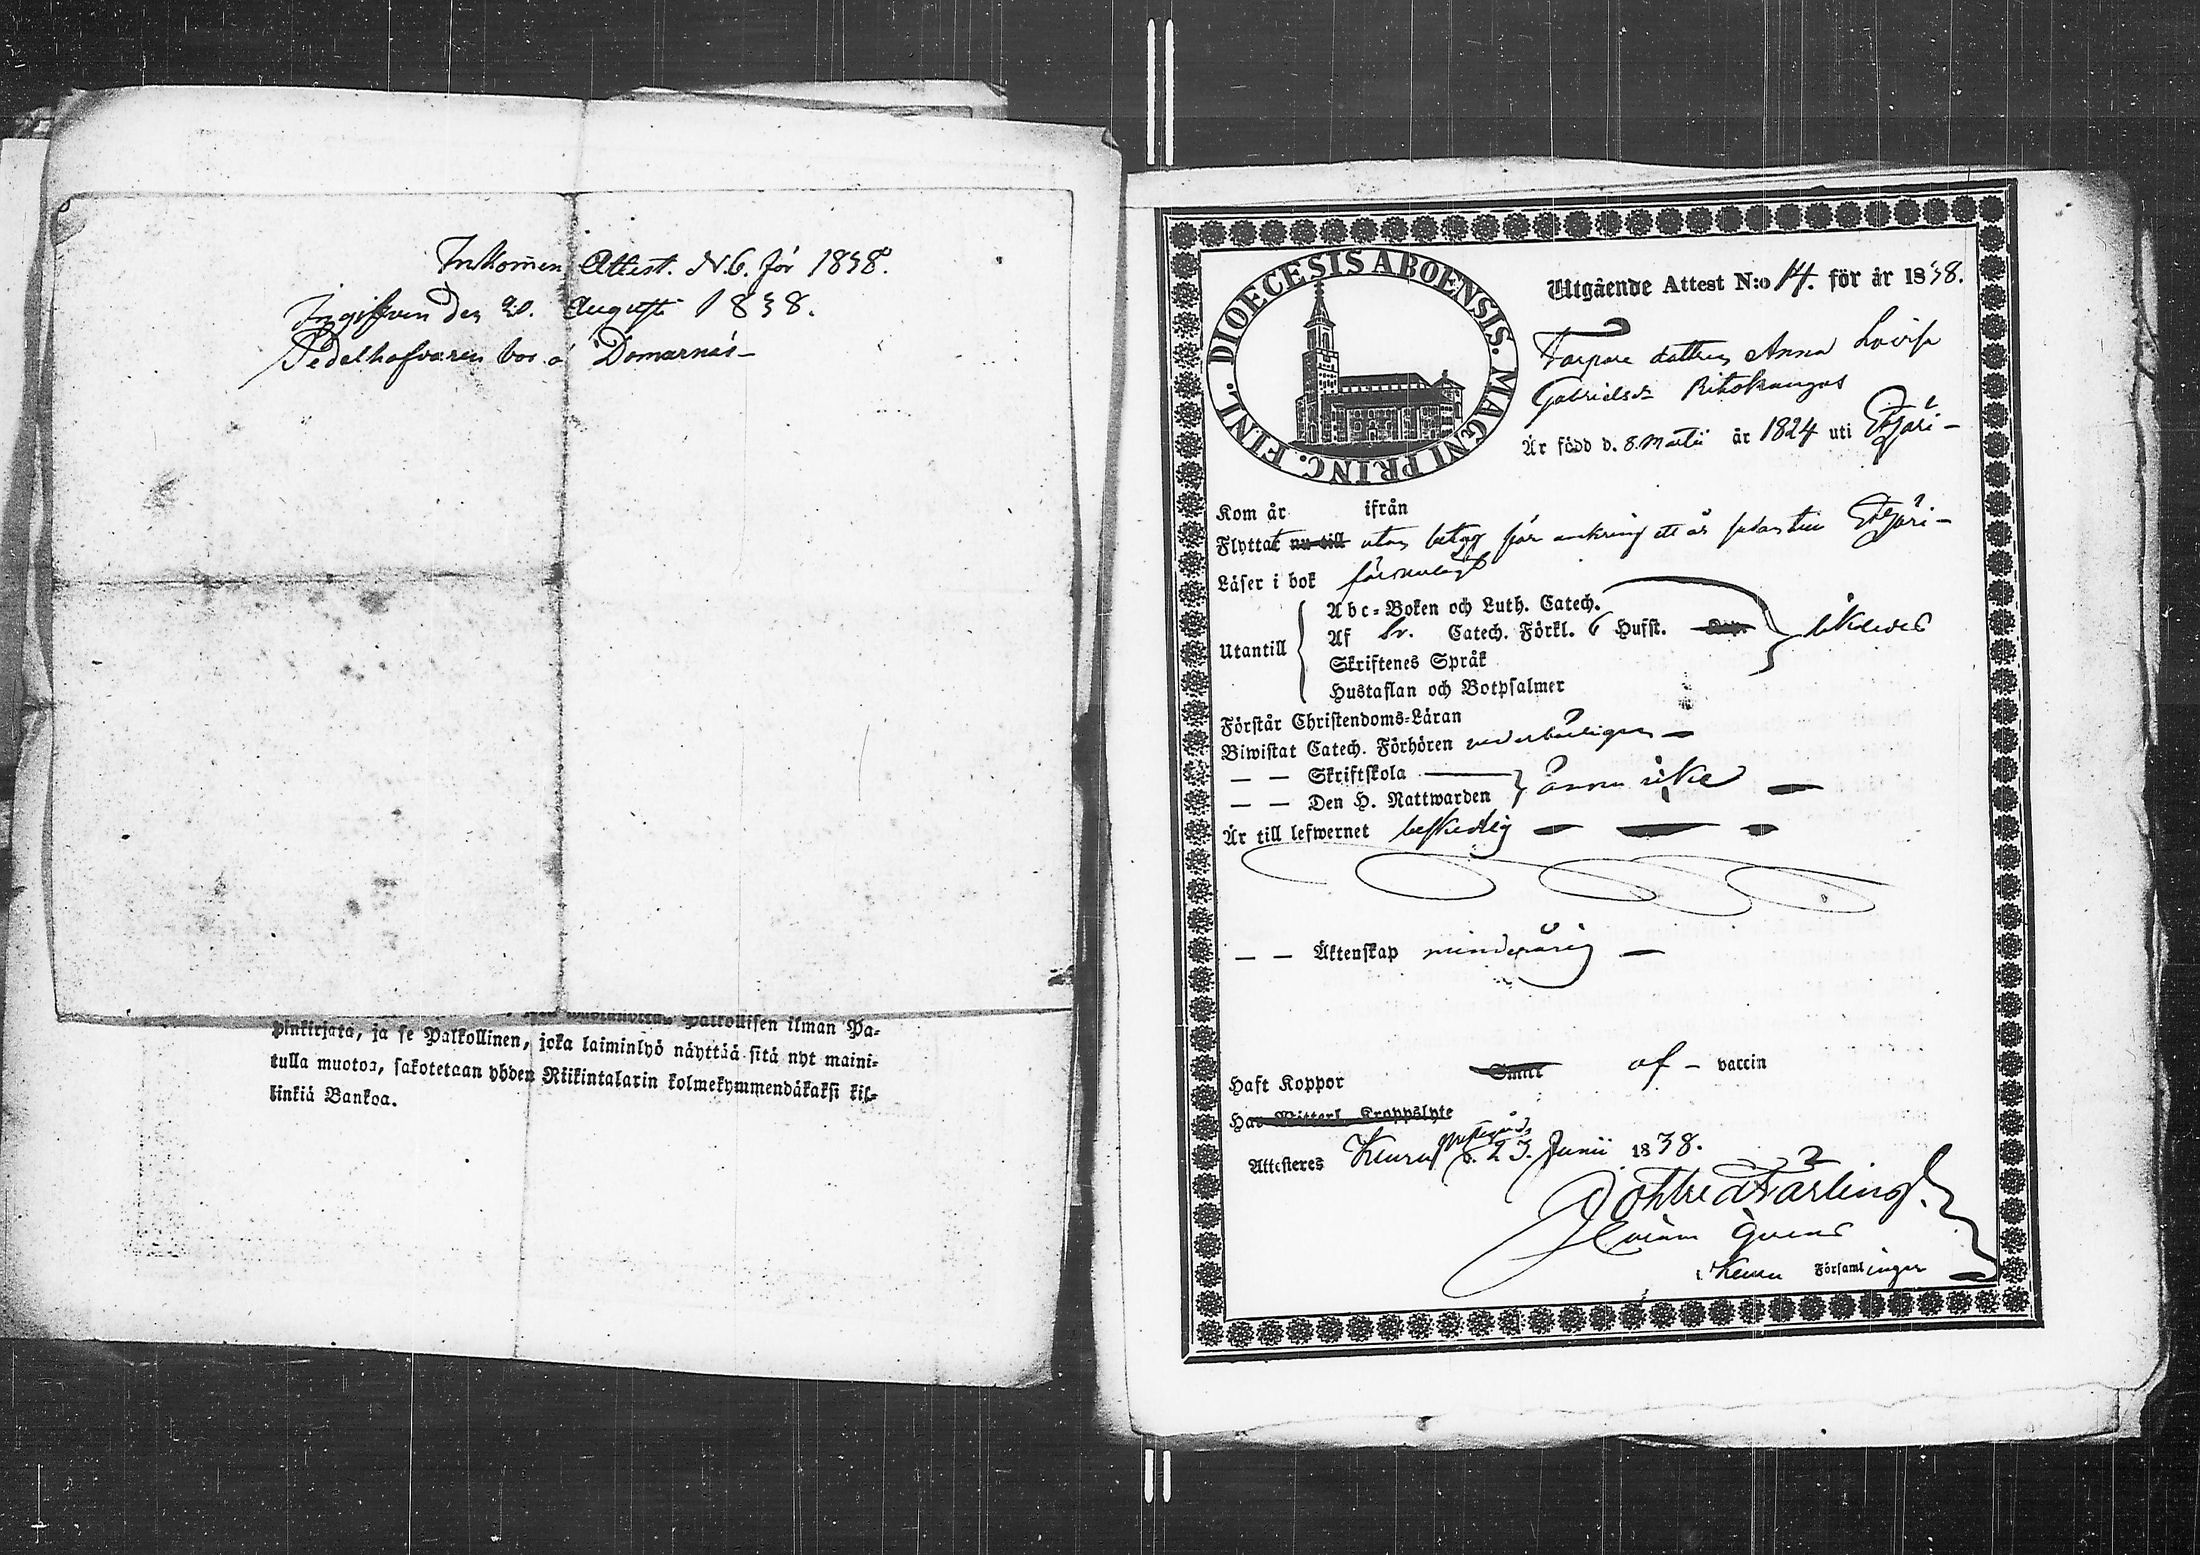 Inkommen Attest. N.6. för 1838.
Ingifven den 20. Augusti 1838.
Pedelhafvaren bor å Domarnäs
Palkollisen ilman Pa-
pinkirjata, ja se Palkollinen, joka laiminlyö näyttää sitä nyt maini-
tulla muotoa, sakotetaan yhden Riikintalarin kolmekymmendäkaksi kil-
linkiä Bankoa.
DIOECESIS ABOENSIS. MAGNI PRINC. FINL.
Utgående Attest N:o 14. för år 1838.
Torpare dottren Anna Lovisa
Gabrielsdr
Är född d. 8. Martii år 1824 uti Etzäri –
Kom år ifrån
Flyttat nu till utan betyg för omkring ett år sedan till Etzäri –
Läser i bok försvarligt
Utantill
Abc-Boken och Luth. Catech.
Af Sv. Catech. Förkl. 6 Hufst.
Skriftenes Språk
Hustaflan och Botpsalmer
Förstår Christendoms-Läran
Biwistat Catech. Förhören vederbörligen –
— — Skriftskola
— — Den H. Nattwarden
ännu icke
Är till lefwernet beskedlig
— — Äktenskap minderårig –
Haft Koppor Smitt af – vaccin
Har Witterl. Kroppslyte
Attesteres Keuru d. 23. Junii 1838.
i Keuru Församlingar